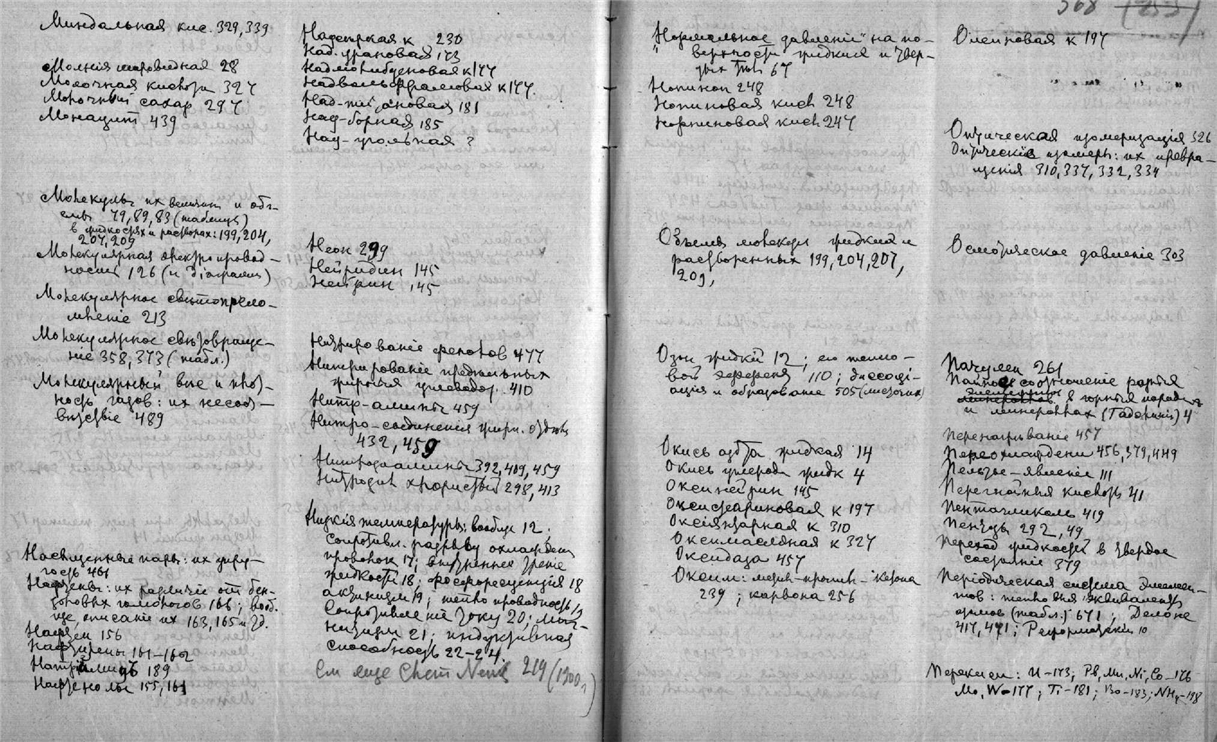 Миндальная кис. 329, 339
Молнія шаровидная 28
Молочная кислота 327
Молочный сахар 297
Монацит 439
Молекулы их величины и объ-
емы 79, 89, 83 (таблица)
в жидкостях и растворах: 199, 204,
207, 209
Молекулярная электропровод-
ность 126 (и діаграммы)
Молекулярное свѣтопрело-
мленіе 213
Молекулярное свѣтовраще-
ніе 358, 373 (табл.)
Молекулярный вѣс и плот-
ность газов: их несоот-
вѣтствіе 489
Насыщенные пары: их упру-
гость 461
Нафтены: их различіе от бен-
золовых гомологов 161; вооб-
ще, описаніе их 163, 165 и д.
Нафтен 156
Нафтилены 161-162
Нафталин 189
Нафтенолы 155, 161
Надсѣрная к 230
Надурановая 173
Надмолибденовая к 177
Надвольфрамовая к 177.
Над-титановая 181
Над-борная 185
Над-угольная ?
Неон 299
Нейридин 145
Нейрин 145
Нитрированіе фенолов 477
Нитрированіе предѣльных
жирных углевод. 410
Нитр-амины 459
Нитро-соединенія жирн.
432, 459
Нитрозоамины 392, 409, 459
Нитрозил хлористый 298, 413
Низкія температуры: вообще 12.
Сопротивл. разрыву охлажден.
проволок 17; внутреннее треніе
жидкости 18; фосфоресценція 18
19; теплопроводность 19
Сопротивленіе току 20; Маг-
нетизм 21; индуктивная
способность 22-24.
См еще Chem News 219 (1900 г)
368 (253)
Нормальное давленіе на по-
верхности жидких и твер-
дых тѣл 67
Нопинон 248
Нопиновая кисл 248
Норпиновая кисл. 247
Объемы молекул жидких и
растворенных 199, 204, 207,
209,
Озон жидкій 12; его тепло-
вой эффект 110; диссоці-
ація и образованіе 505
Окись азота жидкая 14
Окись углерода жидк 4
Оксинейрин 145
Оксистеариновая к 197
Оксіянтарная к 310
Оксимасляная к 327
Оксидаза 457
Оксим: метил-
239; карвона 256
Олеиновая к 197
" " "
Оптическая изомеризація 326
Оптическіе изомеры: их превра-
щенія 310, 337, 332, 334
Осмотическое давленіе 303
Пачулен 261
соотношеніе
в горных породах
и минералах (Гадолиній) 4
Перенапряженіе 457
Переохлажденіе 456, 379, 449
Пельтье-явленіе 111
Перегнойныя кислоты 41
Пентагликоль 419
292, 49
Переход жидкостей в твердое
состояніе 379
Періодическая система Элемен-
тов:
(табл.) 671; Делоне
417, 471; Реформатскій 10
Перекиси: U-173; Pb, Mn, Ni, Co-176
Mo, W-177; Ti-181; Bo-183; NH4-198